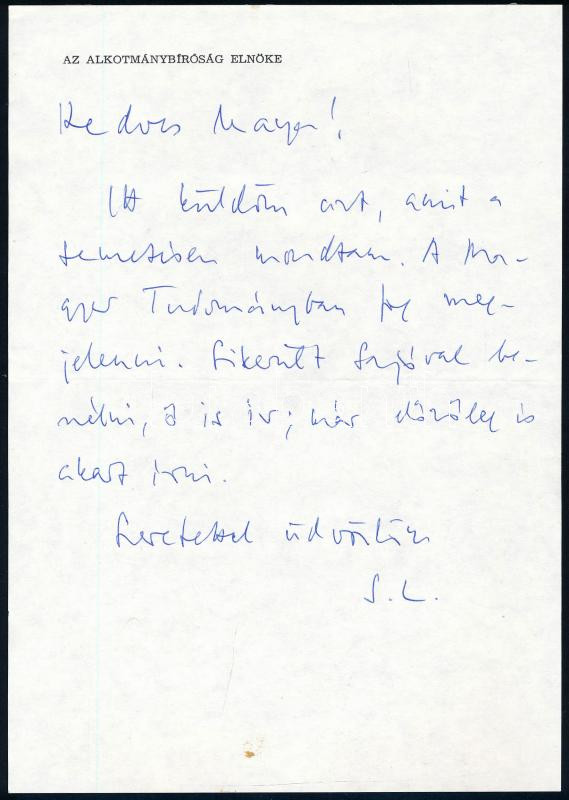 AZ ALKOTMÁNYBÍRÓSÁG ELNÖKE
Kedves Mayer!
Itt küldöm azt, amit a
temetésen mondtam. A Ma-
gyar Tudományban fog meg-
jelenni. Sikerült Sajóval be-
szélni, ő is ír; már előzőleg is
akart írni.
Szeretettel üdvözlöm
S. L.